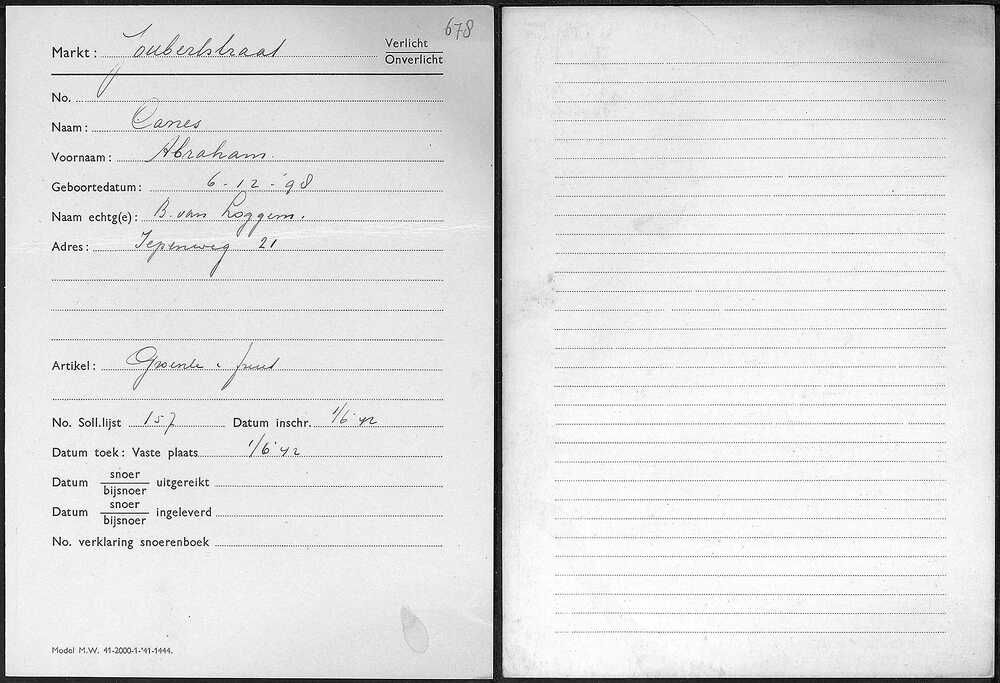 678
Markt: Joubertstraat
Verlicht
Onverlicht
No.
Naam: Canes
Voornaam: Abraham.
Geboortedatum: 6-12-'98
Naam echtg(e): B. van Loggem.
Adres: Iepenweg 21
Artikel: Groente & fruit
No. Soll.lijst 157 Datum inschr. 1/6 '42
Datum toek: Vaste plaats 1/6 '42
Datum snoer/bijsnoer uitgereikt
Datum snoer/bijsnoer ingeleverd
No. verklaring snoerenboek
Model M.W. 41-2000-1-'41-1444.